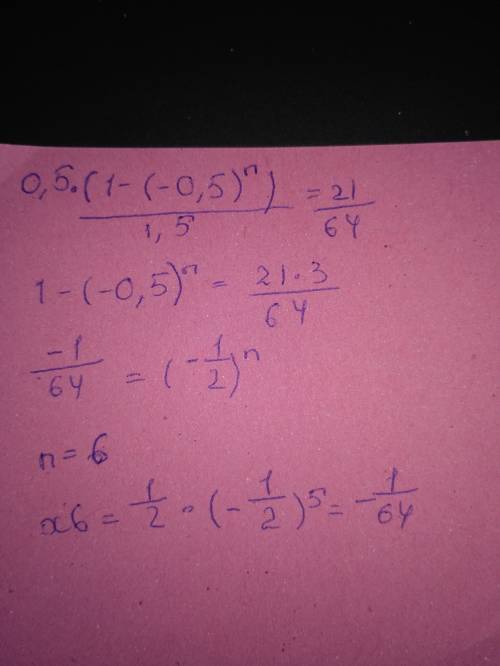 0,5·(1-(-0,5)^n)/1,5 = 21/64
1-(-0,5)^n = 21·3/64
-1/64 = (-1/2)^n
n=6
x6 = 1/2 · (-1/2)^5 = -1/64